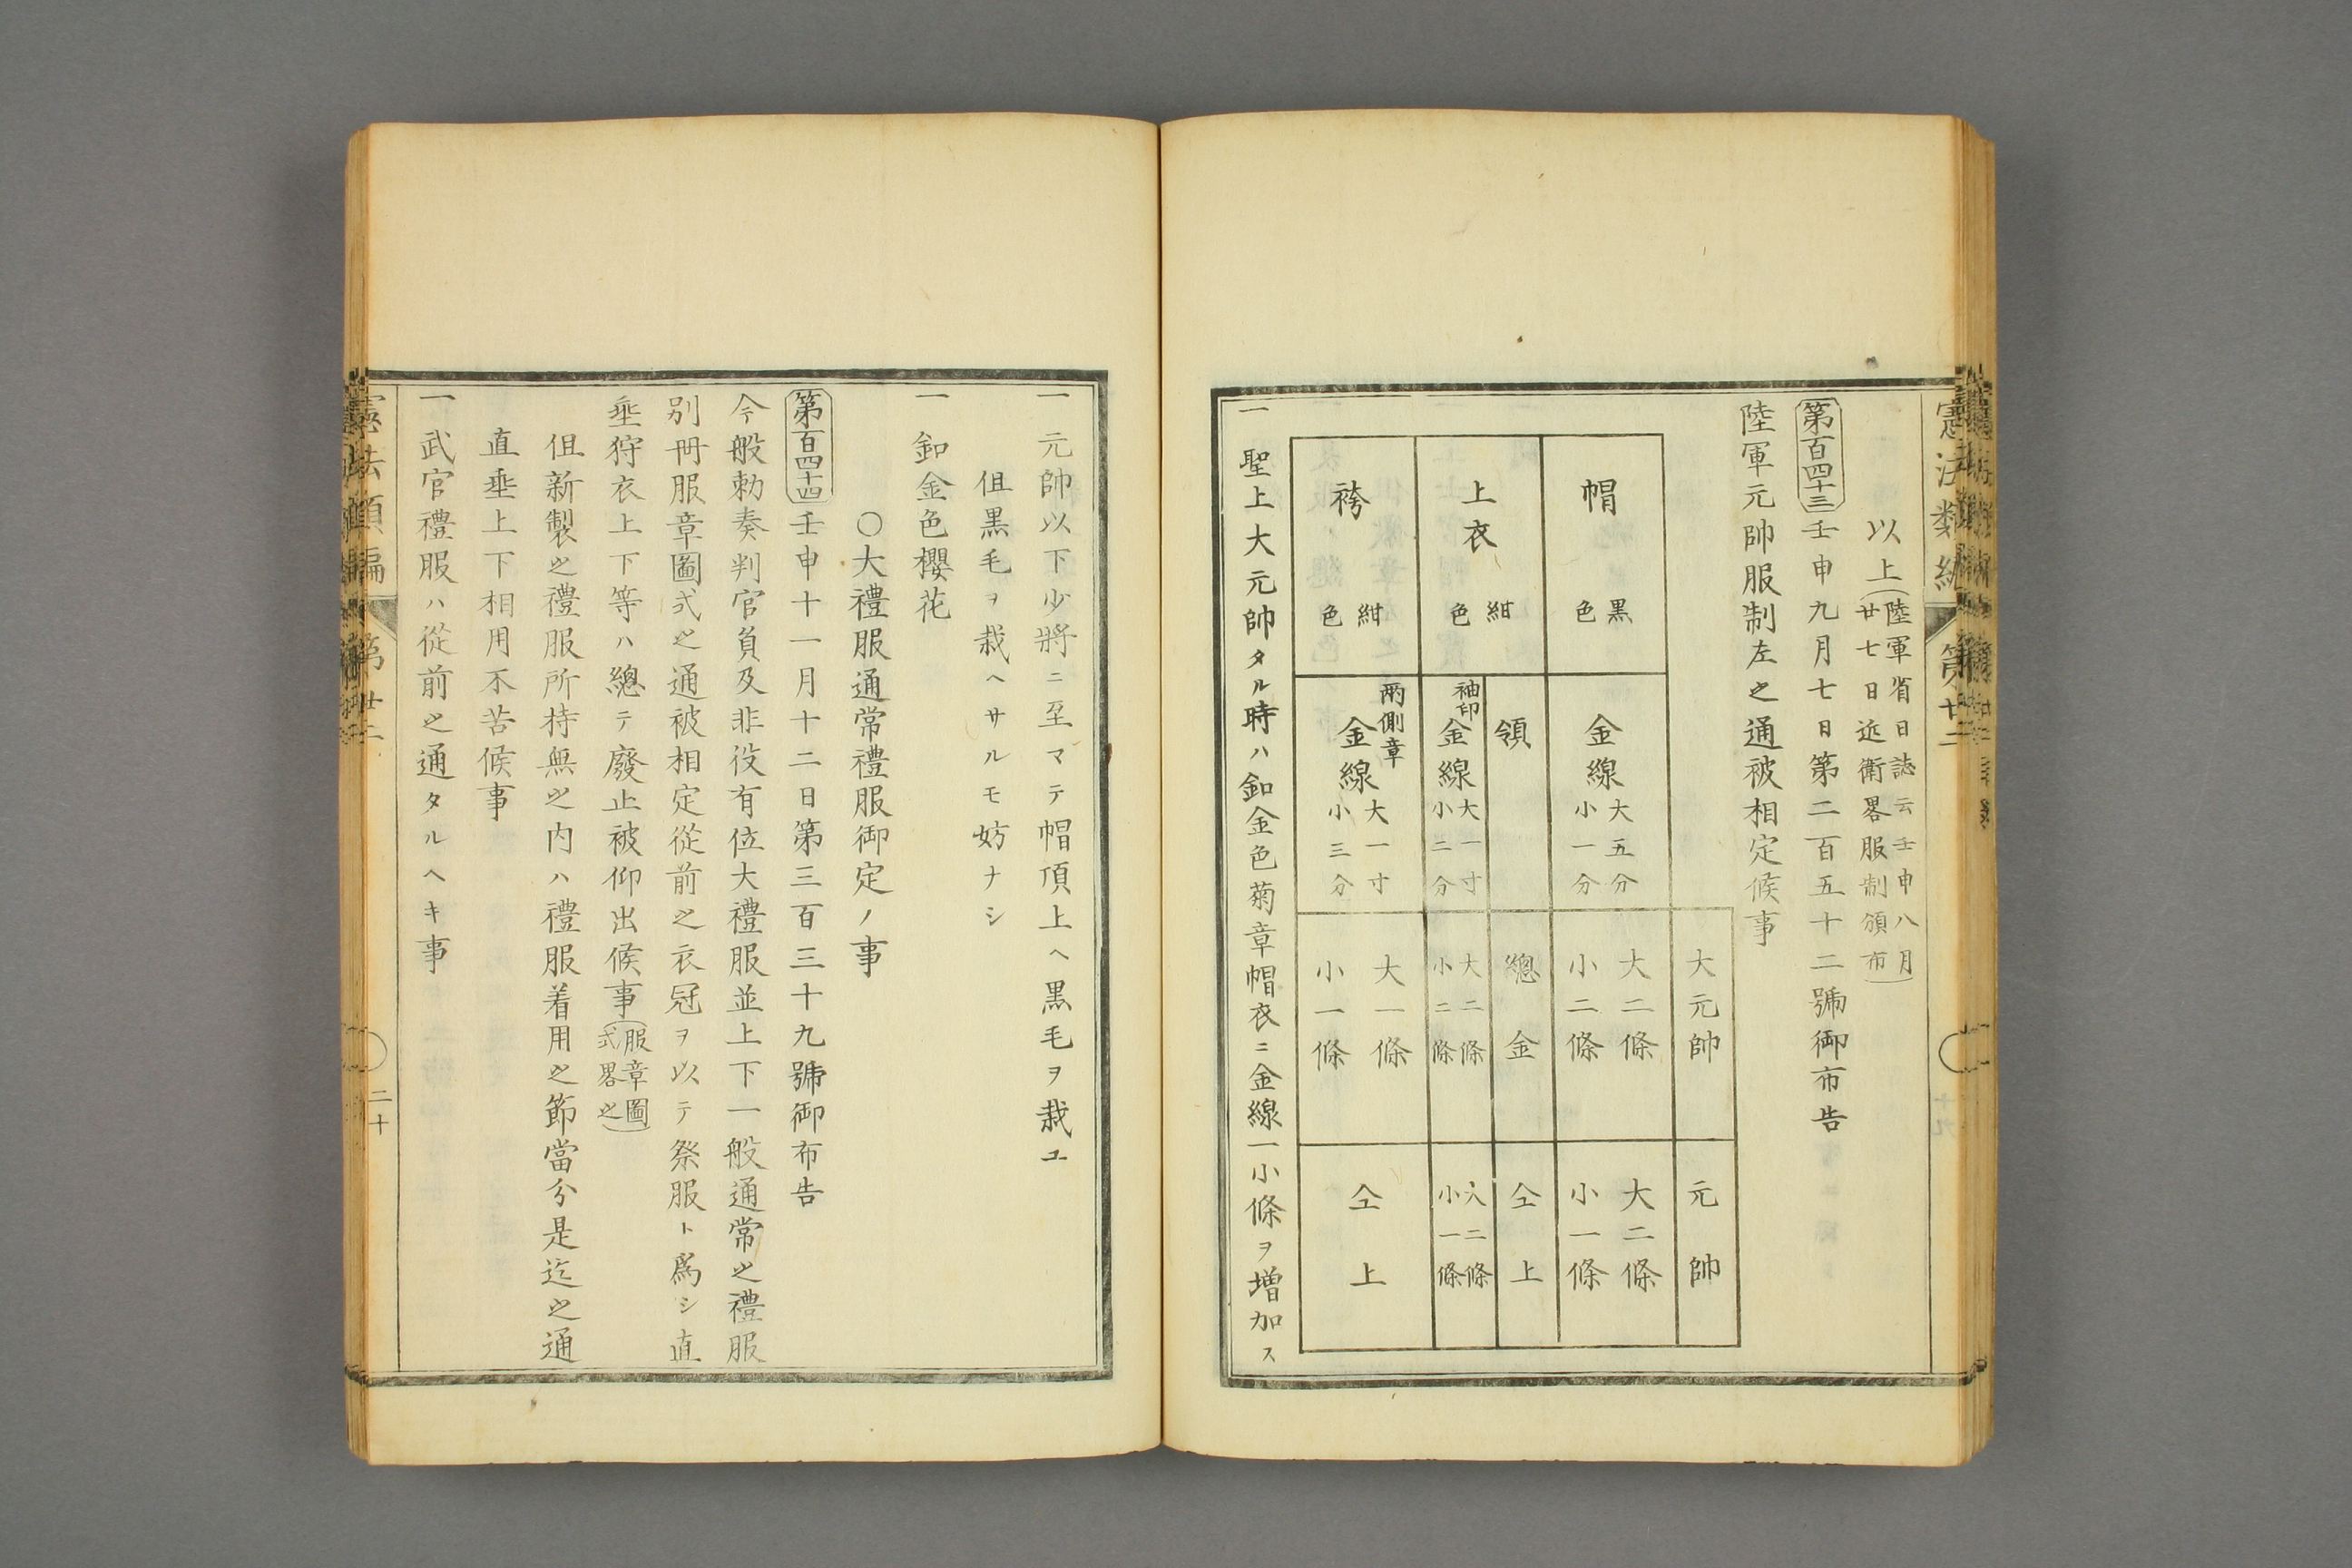 憲法類編
第廿二
十九
以上(陸軍省日誌云壬申八月
廿七日近衛畧服制頒布)
第百四十三 壬申九月七日第二百五十二號御布告
陸軍元帥服制左之通被相定候事
大元帥
元帥
帽
黒色
金線
大五分
小一分
大二條
小二條
大二條
小一條
上衣
紺色
領
總金
仝上
袖印
金線
大一寸
小二分
大二條
小二條
大二條
小一條
袴
紺色
兩側章
金線
大一寸
小三分
大一條
小一條
仝上
一聖上大元帥タル時ハ釦金色菊章帽衣ニ金線一小條ヲ増加ス
一元帥以下少將ニ至マテ帽頂上ヘ黒毛ヲ栽ユ
但黒毛ヲ栽ヘサルモ妨ナシ
一釦金色櫻花
〇大禮服通常禮服御定ノ事
第百四十四 壬申十一月十二日第三百三十九號御布告
今般勅奏判官員及非役有位大禮服並上下一般通常之禮服
別冊服章圖式之通被相定從前之衣冠ヲ以テ祭服ト爲シ直
垂狩衣上下等ハ總テ廢止被仰出候事(服章圖
式畧之)
但新製之禮服所持無之内ハ禮服着用之節當分是迄之通
直垂上下相用不苦候事
一武官禮服ハ從前之通タルヘキ事
憲法類編
第廿二
二十